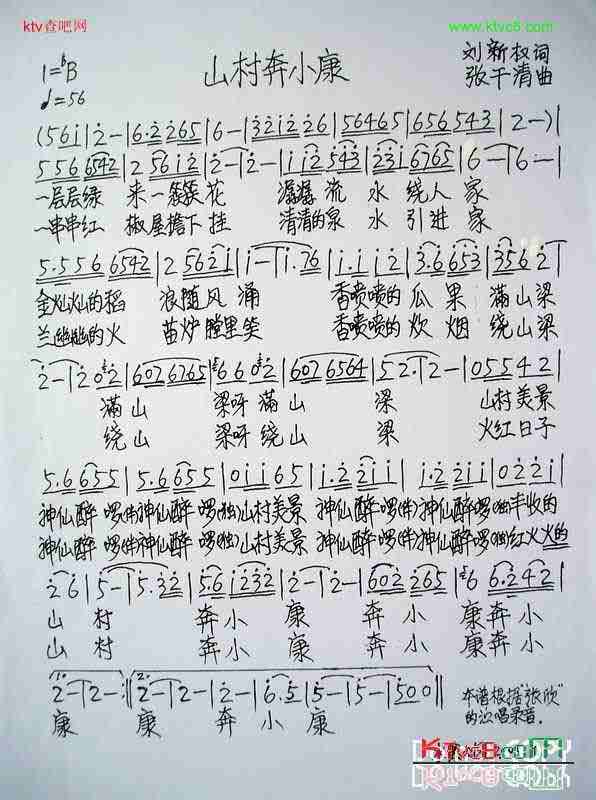 ktv查吧网
www.ktvc8.com
山村奔小康
1=♭B
♩=56
刘新权词
张千清曲
(5 6 i | 2 — | 6·2 2 6 5 | 6 — | 3 2 i 2 2 6 | 5 6 4 6 5 | 6 5 6 5 4 3 | 2 — ) |
5 5 6 6 5 4 2 | 2 5 6 i 2 | 2 — | 2 — | i i i 2 5 4 3 | 2 3 i 6 7 6 5 | 6 — | 6 — |
一层层绿 来一簇簇花 潺潺流水绕人家
一串串红 椒屋檐下挂 清清的泉水引进家
5·5 5 6 6 5 4 2 | 2 5 6 2 i | i — | i·7 6 | i·i i 2 | 3·6 6 5 3 | 3 5 6 2 |
金灿灿的稻 浪随风涌 香喷喷的瓜果满山梁
兰幽幽的火 苗炉膛里笑 香喷喷的炊烟绕山梁
2 — | 2 0 2 | 6 0 2 6 7 6 5 | 6 6 0 2 | 6 0 2 6 5 6 4 | 5 2· | 2 — | 0 5 5 4 2 |
满山 梁呀满山 梁 山村美景
绕山 梁呀绕山 梁 火红日子
5·6 6 5 5 | 5·6 6 5 5 | 0 i i 6 5 | i·2 2 i i | i·2 2 i i | 0 2 2 i |
神仙醉啰(伴)神仙醉啰(独)山村美景 神仙醉啰(伴)神仙醉啰(独)丰收的
神仙醉啰(伴)神仙醉啰(独)山村美景 神仙醉啰(伴)神仙醉啰(独)红火火的
2 6 | 5 — | 5·3 2 | 5 6 i 2 3 2 | 2 — | 2 — | 6 0 2 2 6 5 | 6 6·2 4 2 |
山村 奔小康 奔小康奔小
山村 奔小康 奔小康奔小
1. 2 — | 2 — :‖ 2. 2 — | 2 — | 2 — | 6·5 | 5 — | 5 — | 5 0 0 ‖
康 康 奔小康
本谱根据"张欣"
的演唱录音.